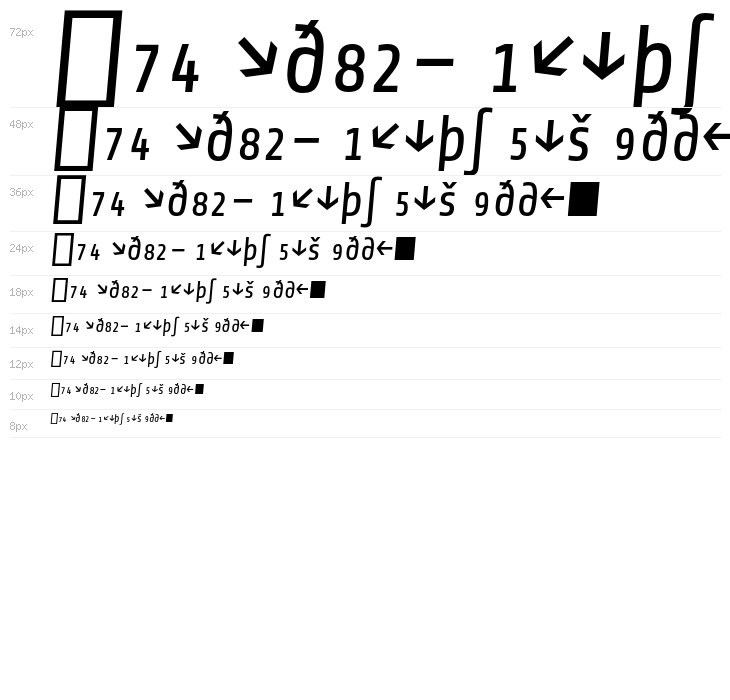 72px ▯74 ↘ð82− 1↙↓þ∫
48px ▯74 ↘ð82− 1↙↓þ∫ 5↓š 9ð∂←
36px ▯74 ↘ð82− 1↙↓þ∫ 5↓š 9ð∂←■
24px ▯74 ↘ð82− 1↙↓þ∫ 5↓š 9ð∂←■
18px ▯74 ↘ð82− 1↙↓þ∫ 5↓š 9ð∂←■
14px ▯74 ↘ð82− 1↙↓þ∫ 5↓š 9ð∂←■
12px ▯74 ↘ð82− 1↙↓þ∫ 5↓š 9ð∂←■
10px ▯74 ↘ð82− 1↙↓þ∫ 5↓š 9ð∂←■
8px ▯74 ↘ð82− 1↙↓þ∫ 5↓š 9ð∂←■